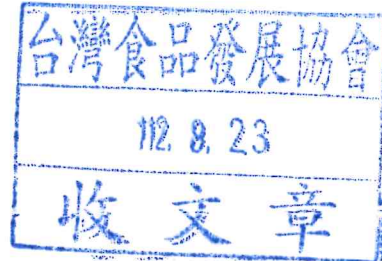 台灣食品發展協會
112. 8. 23
收文章